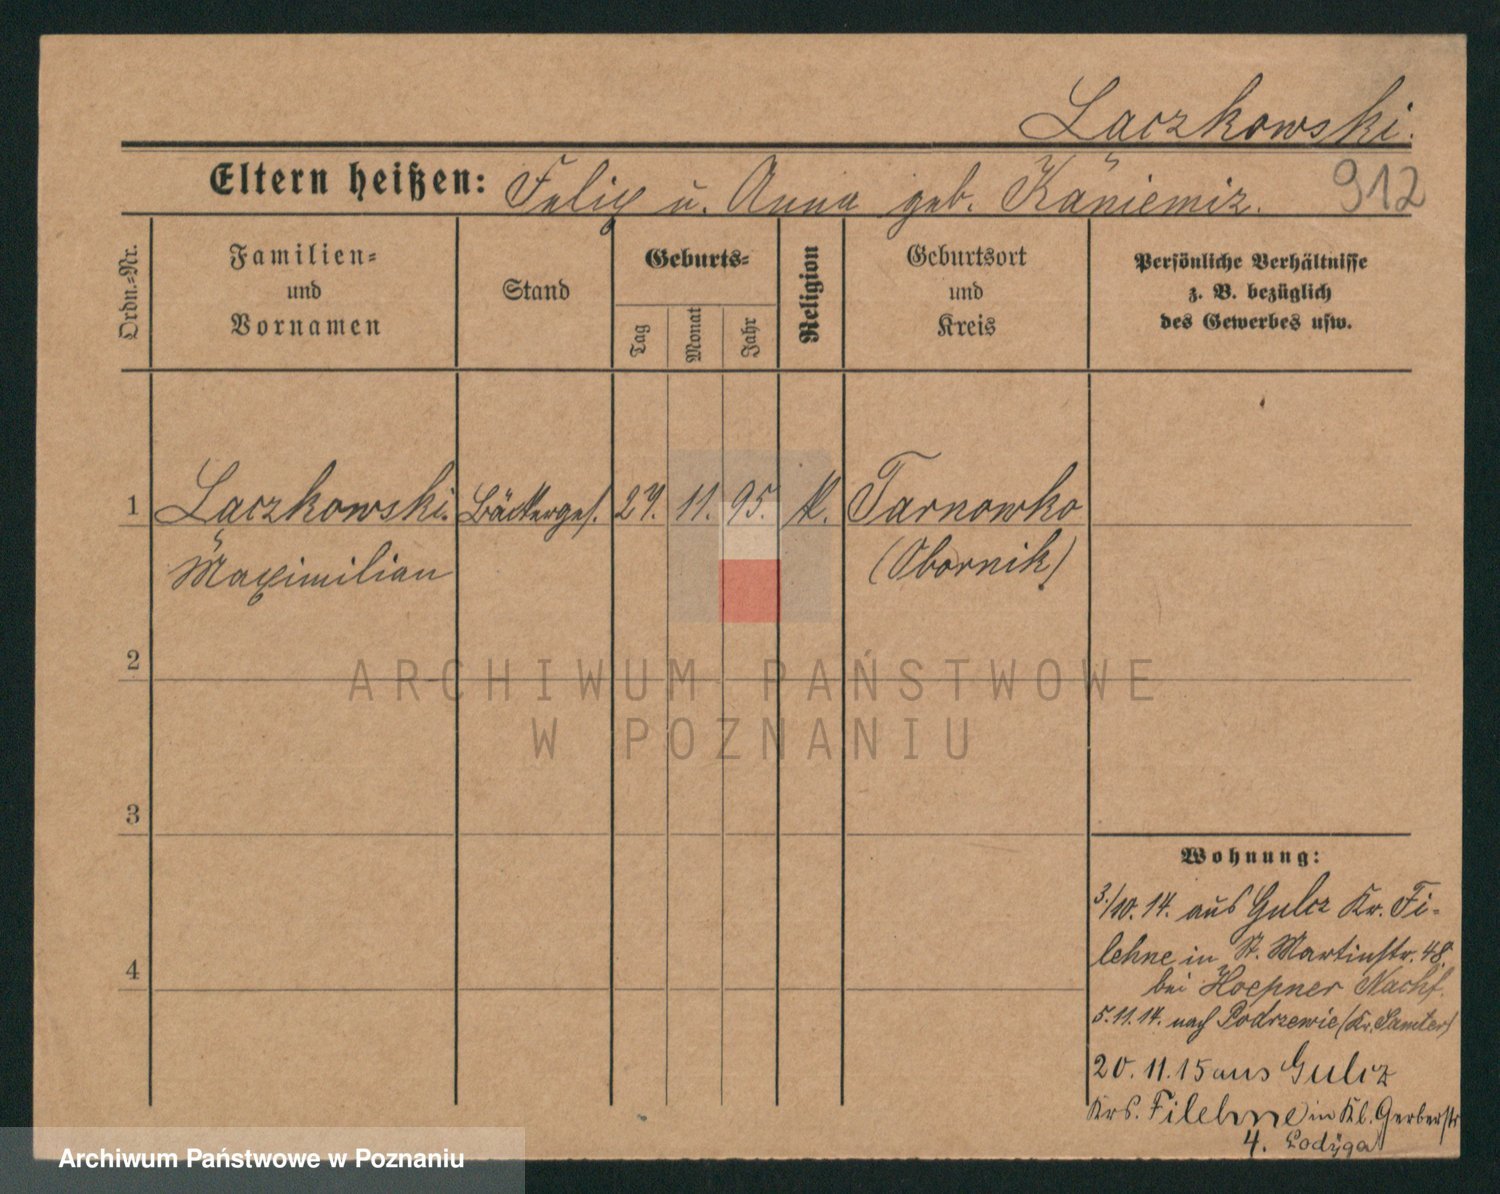 Laczkowski.
Eltern heißen: Felix u. Anna geb. Kaniemiz. 912
Ordn.=Nr.
Familien=
und
Vornamen
Stand
Geburts=
Tag
Monat
Jahr
Religion
Geburtsort
und
Kreis
Persönliche Verhältnisse
z. B. bezüglich
des Gewerbes usw.
1 Laczkowski. Bäckerges. 27. 11. 95. k. Tarnowko
Maximilian (Obornik)
2
3
4
Wohnung:
3./10. 14. aus Gulcz Kr. Fi-
lehne in St. Martinstr. 48.
bei Hoepner Nachf.
5.11.14. nach Podrzewie (Kr. Samter)
20. 11. 15 aus Gulcz
Krs. Filehne in Kl. Gerberstr
4. Lodyga
ARCHIWUM PAŃSTWOWE
W POZNANIU
Archiwum Państwowe w Poznaniu